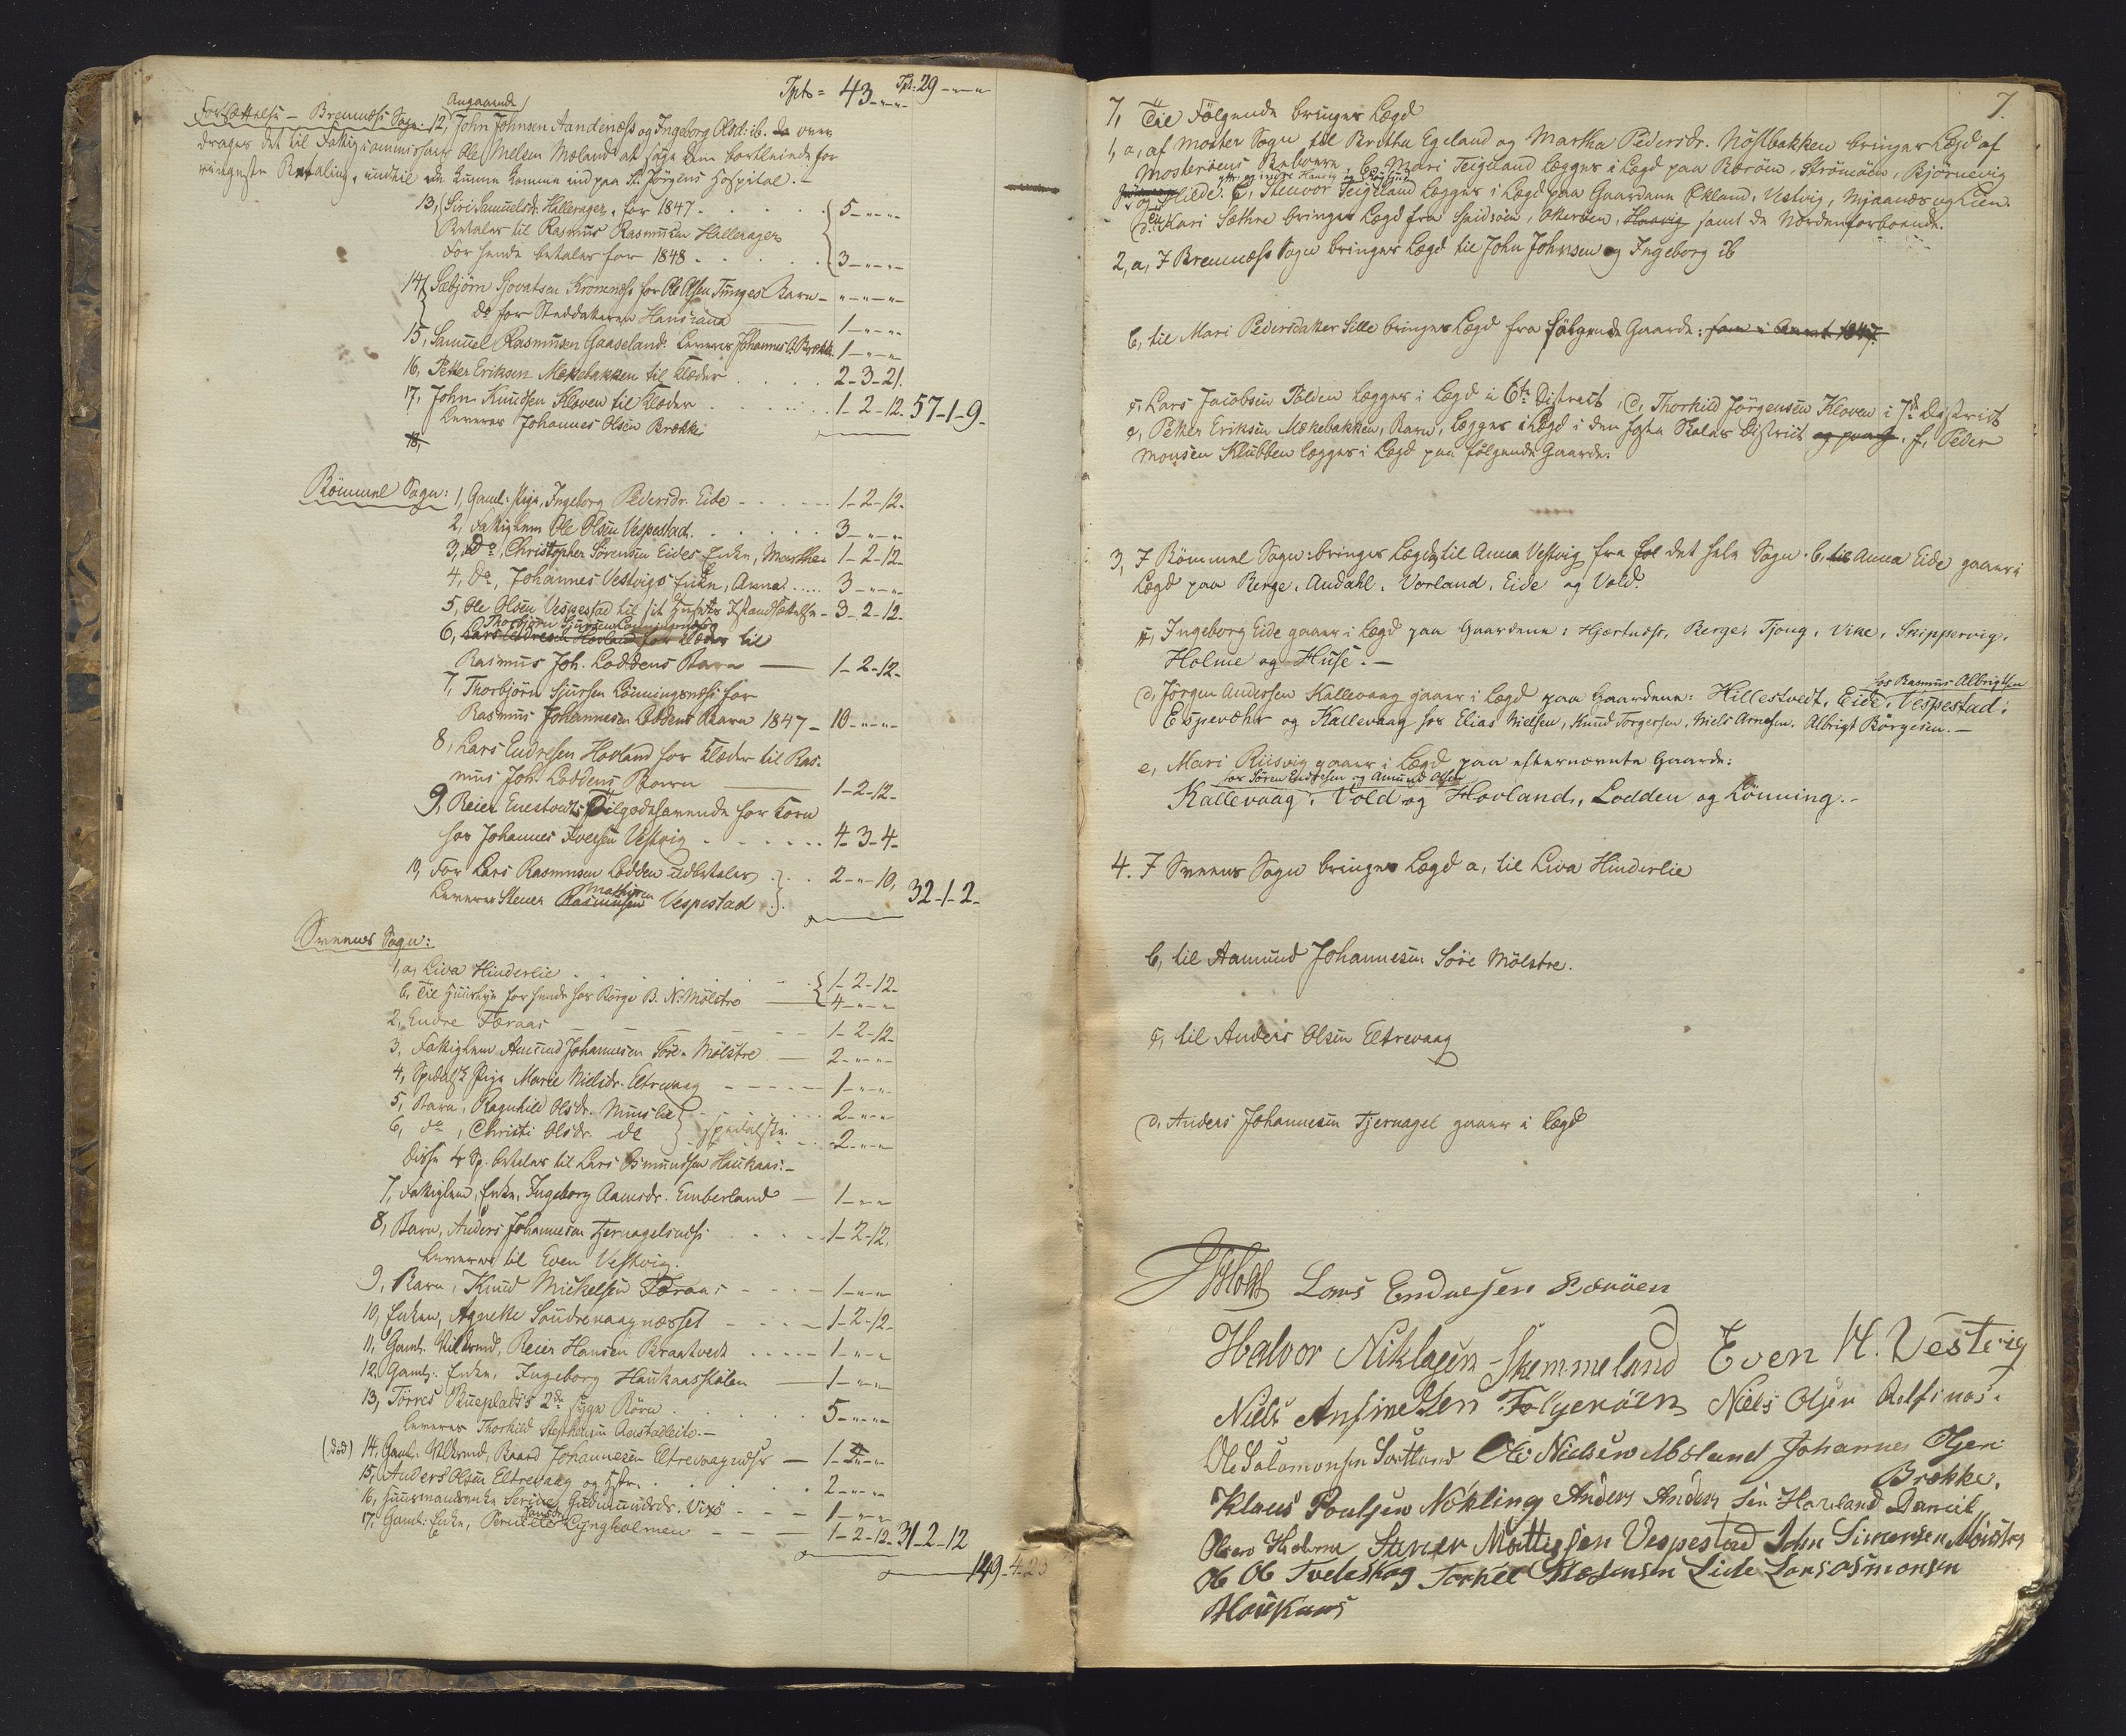 Tpts = 43-"-"- Tpt: 29-"-"
Fortsættelse - Bremnæss Sogn. 12, Angaaende John Johnsen Aandenæss og Ingeborg Olsd: ib. da over
drages det til Fattigcommissair Ole Melsen Mæland at søge dem bortleiede for
ringeste Betaling, indtil de kunne komme ind paa St. Jørgens Hospital. -
13, Siri Samuelsdr. Hallerager, for 1847 . . . 5-"-"-
Betales til Rasmus Rasmussen Hallerager
For hende betales for 1848 . . . 3-"-"-
14, Sæbjørn Sjovatsen Kromnæss for Ole Olsen Tunges Barn - "-"-"
do for Staddakeren 1-"-"-
15, Samuel Rasmusen Gaaseland. Leveres Johannes O. Brække. 1-"-"
16, Petter Eriksen Mækebakken til Klæder . . . 2-3-21.
17, John Knudsen Kloven til Klæder . . . 1-2-12. 57-1-9-
Leveres Johannes Olsen Brække
18,
Bömmel Sogn: 1, Gaml: Pige, Ingeborg Pedersdr. Eide - - - 1-2-12-
2, Fattiglem Ole Olsen Vespestad . . . 3-"-"-
3, do, Christopher Sörensen Eides Enke, Marthe 1-2-12-
4, do, Johannes Vestvigs Enke, Anna . . . 3-"-"-
5, Ole Olsen Vespestad til sit Huses Istandsættelse - 3-2-12-
Thorbjørn Sjursen Lønningsnæss
6, Lars Endresen Hovland for Klæder til
Rasmus Joh. Loddens Barn — 1-2-12-
7, Thorbjörn Sjursen Lönningsnæss for
Rasmus Johannesen Loddens Barn 1847 - 10-"-"-
8, Lars Endresen Hovland for Klæder til Ras-
mus Joh. Loddens Barn — 1-2-12-
9, Reier Enestvedts Tilgodehavende for Korn
hos Johannes Iversen Vestvig . . . 4-3-4-
10, For Lars Rasmussen Lodden udbetales . . . 2-"-10,
Leveres Stener Rasmusen Mathisen Vespestad 32-1-2-
Sveens Sogn:
1, a, Liva Hinderlie . . . 1-2-12-
b, Til Huusleje for hende hos Börge B. N. Mölstre 4-"-"-
2, Endre Færaas 1-2-12-
3, Fattiglem Amund Johannesen Söre Mölstre — 2-"-"-
4, Spedalsk Pige Marie Nielsdr. Eltrevaag - - - 1-"-"-
5, Barn, Ragnhild Olsdr. 2-"-"-
6, do, Christi Olsdr. do } spedalske. 2-"-"-
Disse 4 Sp. betales til Lars Osmundsen Haukaas. -
7, Fattiglem, Enke, Ingeborg Aamdr. Emberland — 1-"-"-
8, Barn, Anders Johannesen Tjernagelsnæss . . . 1-2-12.
Leveres til Even Vestvig.
9, Barn, Knud Mickelsen Færaas - - - 1-"-"-
10, Enken, Agnethe Söndrevaagnæsset - - - 1-2-12-
11, Gaml. Reier Hansen Braatvedt - - - 1-"-"-
12, Gaml: Enke, Ingeborg Haukaasskålen — 1-"-"-
13, Törres 2de syge Börn . . . 5-"-"-
Leveres Thorkild
(död) 14, Gaml. Baard Johannesen Eltrevaagnæss — 1-"-"-
15, Anders Olsen Eltrevaag og Hstr. . . . 2-"-"-
16, Huusmandsenke Serine Gudmundsdr. Vixö - - - 1-"-"-
17, Gaml: Enke, Lyngholmen - - - 1-2-12- 31-2-12
149-4-23
7.
7, Til Fölgende bringes Lægd
1, a, af Moster Sogn til Britha Egeland og Martha Pedersdr. Nöstbakken bringes Lægd af
Mosteröens Beboere. b, Mari Teigeland lægges i Lægd paa Bæröen, Strömöen, Björnevig
og Hilde. c, Steuvor Teigeland lægges i Lægd paa Gaardene Økland, Vestvig, Mjaanæs og Lien.
d, Kari Sæthre bringes Lægd fra Spidsöen, Otteröen, Haavig samt de Nordenforboende.
2, a, I Bremnæss Sogn bringes Lægd til John Johnsen og Ingeborg ib
b, til Mari Pedersdatter Sille bringes Lægd fra fölgende Gaarde: som i Aaret 1847.
c, Lars Jacobsen Tolden lægges i Lægd i 6te District, d, Thorkild Jörgensen Kloven i 7de District
e, Petter Eriksen Mækebakken, Barn, lægges i Lægd i den søndre Skoles District og paa f, Peder
Monsen Klubben lægges i Lægd paa fölgende Gaarde:
3, I Bömmel Sogn: bringes Lægd a, til Anna Vestvig fra det hele Sogn. b, til Anna Eide gaaer i
Lægd paa Berge, Andahl, Vorland, Eide og Vold.
c, Ingeborg Eide gaaer i Lægd paa Gaardene: Hjærtnæss, Berge, Tjong, Vike, Snippervig,
Holme og Huse. -
d, Jörgen Andersen Kallevaag gaaer i Lægd paa Gaardene: Hillestvedt, Eide, Vespestad hos Rasmus Albrigtsen,
Espevæhr og Kallevaag hos Elias Nielsen, Knud Torgersen, Niels Arnesen, Albrigt Börgesen. -
e, Mari Riisvig gaaer i Lægd paa efternævnte Gaarde:
hos Sören Endresen og Amund Olsen
Kallevaag, Vold og Hovland, Lodden og Lönning. -
4. I Sveens Sogn bringes Lægd a, til Liva Hinderlie
b, til Aamund Johannesen Söre Mölstre.
c, til Anders Olsen Eltrevaag
d, Anders Johannesen Tjernagel gaaer i Lægd
Lars Endresen Bæröen
Halvor Niklasen Stemmeland Even H. Vestvig
Niels Anfinesen Folgeröen Niels Olsen
Ole Salomonsen Sortland Ole Nielsen Mæland Johannes Olsen
Brække.
Klaus Poulsen Nökling Anders Andersen Havland Daniel
Olsen Steener Mattissen Vespestad John Simonsen Mölstre
Ole O Tvedeskog Torkel Lide Lars Osmonsen
Houkaas